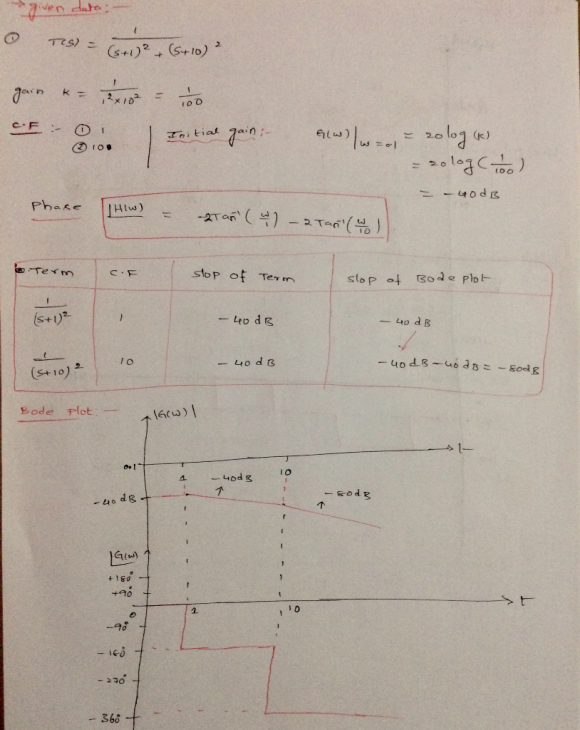 → given data:-
① T(s) = 1/((s+1)² + (s+10)²)
gain k = 1/(1²×10²) = 1/100
C.F :- ① 1
② 10
Initial gain:-
G(ω)|ω=01 = 20 log (k)
= 20 log (1/100)
= -40 dB
Phase ∠H(ω) = -2Tan⁻¹(ω/1) - 2Tan⁻¹(ω/10)
Term C.F Slop of Term Slop of Bode Plot
1/(s+1)² 1 -40 dB -40 dB
1/(s+10)² 10 -40 dB -40 dB -40 dB = -80dB
Bode Plot:-
|G(ω)|
0.1
1 10
-40dB -40dB -80dB
∠G(ω)
+180°
+90°
0 1 10
-90°
-270°
-360°